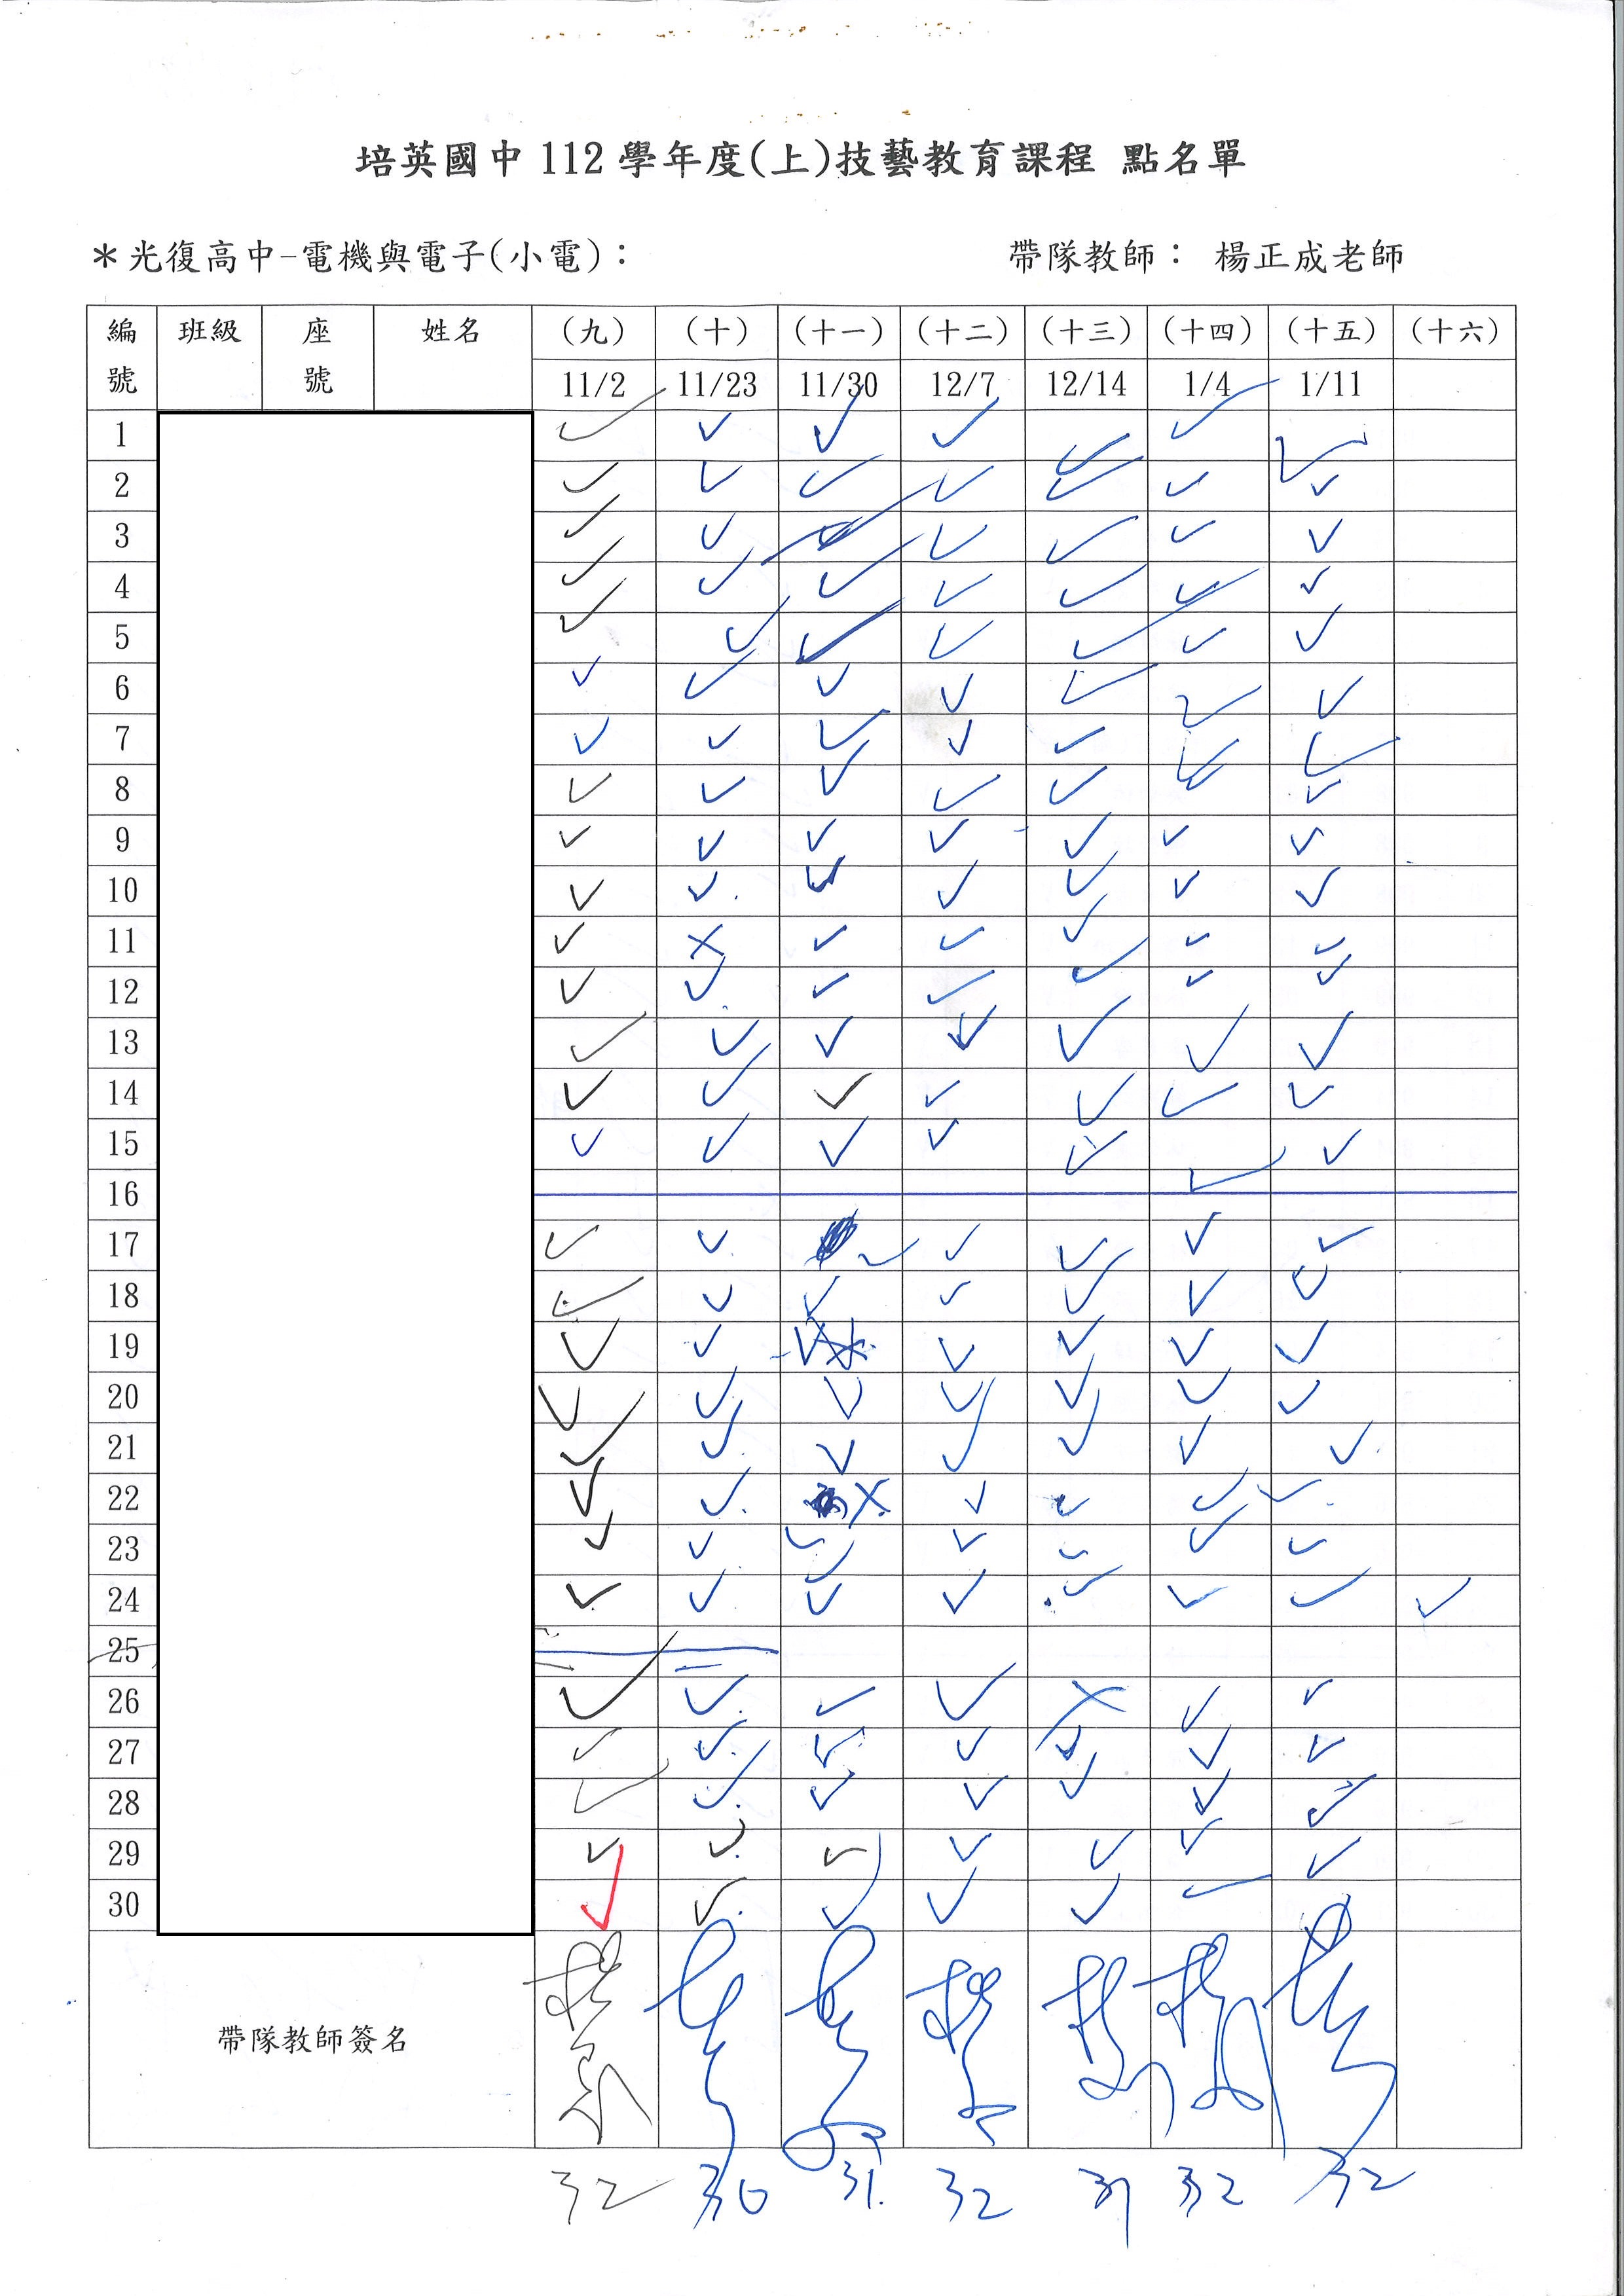 培英國中 112 學年度(上)技藝教育課程 點名單
＊光復高中-電機與電子(小電)： 帶隊教師： 楊正成老師
編號 班級 座號 姓名 (九) (十) (十一) (十二) (十三) (十四) (十五) (十六)
11/2 11/23 11/30 12/7 12/14 1/4 1/11
1 ✓ ✓ ✓ ✓ ✓ ✓ ✓
2 ✓ ✓ ✓ ✓ ✓ ✓ ✓
3 ✓ ✓ ✓ ✓ ✓ ✓
4 ✓ ✓ ✓ ✓ ✓ ✓ ✓
5 ✓ ✓ ✓ ✓ ✓ ✓ ✓
6 ✓ ✓ ✓ ✓ ✓ ✓ ✓
7 ✓ ✓ ✓ ✓ ✓ ✓ ✓
8 ✓ ✓ ✓ ✓ ✓ ✓ ✓
9 ✓ ✓ ✓ ✓ ✓ ✓ ✓
10 ✓ ✓ ✓ ✓ ✓ ✓ ✓
11 ✓ ✗ ✓ ✓ ✓ ✓ ✓
12 ✓ ✓ ✓ ✓ ✓ ✓ ✓
13 ✓ ✓ ✓ ✓ ✓ ✓ ✓
14 ✓ ✓ ✓ ✓ ✓ ✓ ✓
15 ✓ ✓ ✓ ✓ ✓ ✓ ✓
16
17 ✓ ✓ ✓ ✓ ✓ ✓ ✓
18 ✓ ✓ ✓ ✓ ✓ ✓ ✓
19 ✓ ✓ ✓ ✓ ✓ ✓ ✓
20 ✓ ✓ ✓ ✓ ✓ ✓ ✓
21 ✓ ✓ ✓ ✓ ✓ ✓ ✓
22 ✓ ✓ ✗ ✓ ✓ ✓ ✓
23 ✓ ✓ ✓ ✓ ✓ ✓ ✓
24 ✓ ✓ ✓ ✓ ✓ ✓ ✓ ✓
25
26 ✓ ✓ ✓ ✓ ✗ ✓ ✓
27 ✓ ✓ ✓ ✓ ✓ ✓ ✓
28 ✓ ✓ ✓ ✓ ✓ ✓ ✓
29 ✓ ✓ ✓ ✓ ✓ ✓ ✓
30 ✓ ✓ ✓ ✓ ✓ ✓
帶隊教師簽名
32 30 31. 32 31 32 32